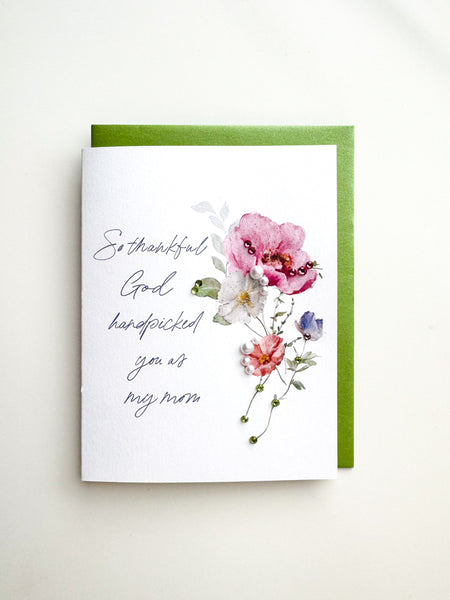 So thankful
God
handpicked
you as
my mom